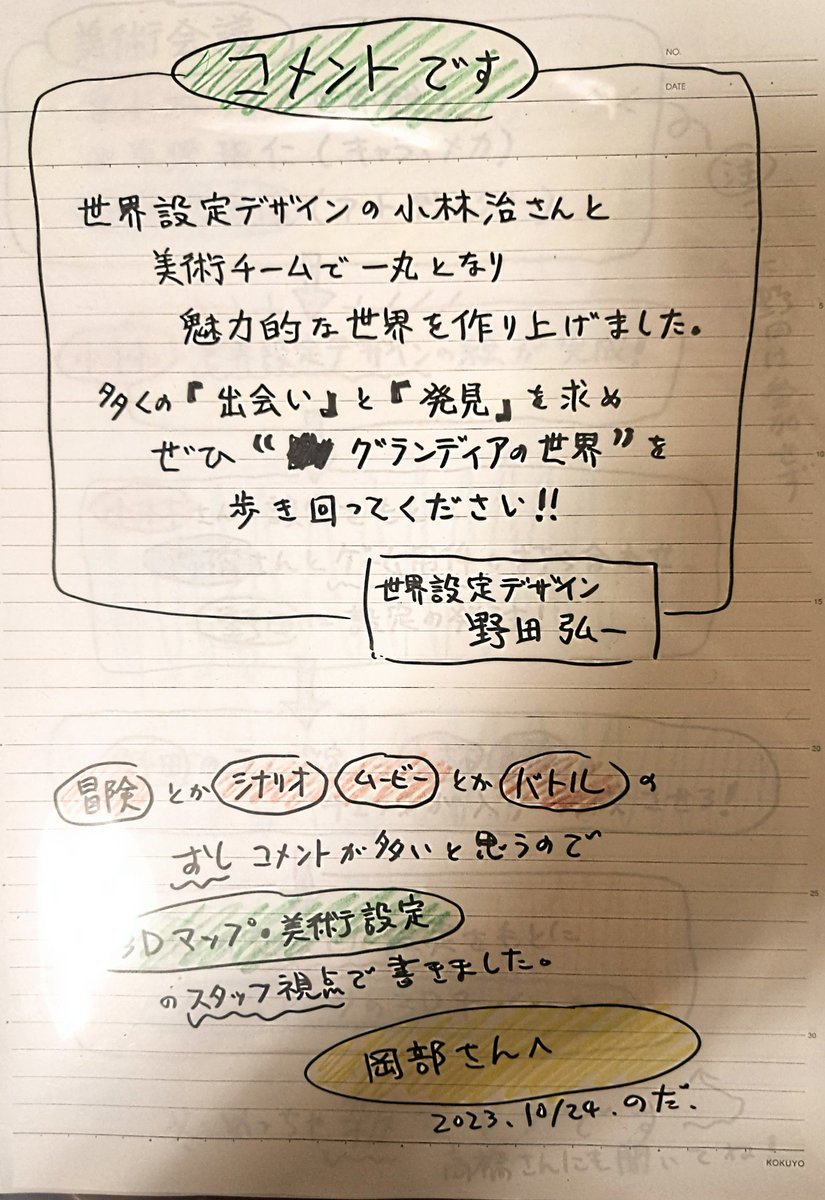 コメントです
NO.
DATE
世界設定デザインの小林治さんと
美術チームで一丸となり
魅力的な世界を作り上げました。
多くの『出会い』と『発見』を求め
ぜひ“グランディアの世界”を
歩き回ってください!!
世界設定デザイン
野田弘一
冒険とかシナリオムービーとかバトルの
おしコメントが多いと思うので
3Dマップ・美術設定
のスタッフ視点で書きました。
岡部さんへ
2023.10/24.のだ.
KOKUYO